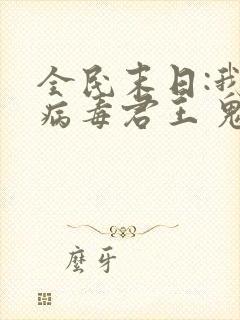 全民末日:我
病毒君王 鬼
麽牙